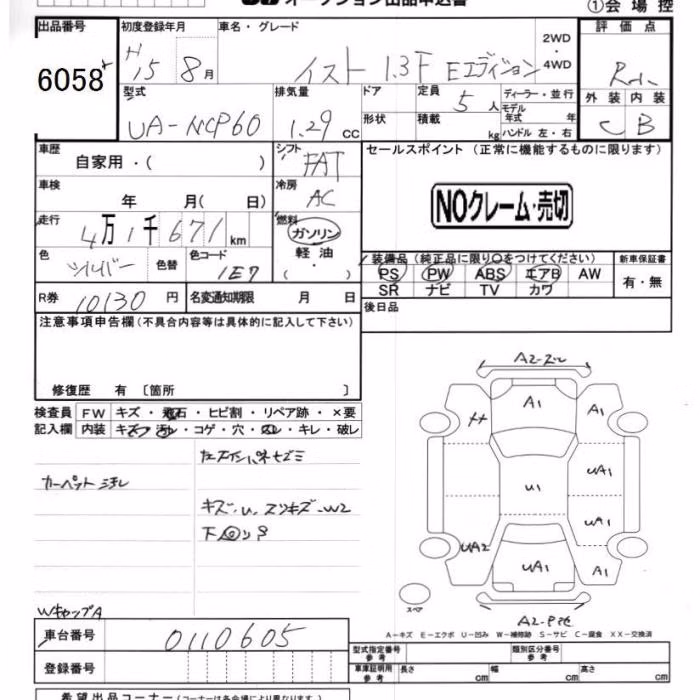 オークション出品申込書
①会場控
出品番号
6058
初度登録年月
H15 8月
車名・グレード
イスト 1.3F Eエディション
2WD
・
4WD
評価点
外装 内装
C B
型式
UA-NCP60
排気量
1.29 cc
ドア
形状
定員
5人
積載
kg
ディーラー・並行
モデル
年式 年
ハンドル 左・右
車歴
自家用・( )
シフト
FAT
セールスポイント (正常に機能するものに限ります)
NOクレーム・売切
車検
年 月( 日)
冷房
AC
走行
4万1千671km
燃料
ガソリン
軽油
( ・ )
色
シルバー
色替
色コード
1E7
装備品 (純正品に限り○をつけてください)
PS PW ABS エアB AW
SR ナビ TV カワ
新車保証書
有・無
R券
10130円
名変通知期限 月 日
後日品
注意事項申告欄(不具合内容等は具体的に記入して下さい)
修復歴 有 〔箇所 〕
検査員
記入欄
FW キズ・飛石・ヒビ割・リペア跡・×要
内装 キズ・汚れ・コゲ・穴・スレ・キレ・破レ
カーペット汚れ
WキャップA
A1
A1
UA1
U1
UA1
UA2
UA1
A1
スペア
A-キズ E-エクボ U-凹み W-補修跡 S-サビ C-腐食 XX-交換済
車台番号
0110605
登録番号
型式指定番号
参考
類別区分番号
参考
車庫証明用
参考
長さ cm
幅 cm
高さ cm
希望出品コーナー(コーナーは各会場により異なります。)